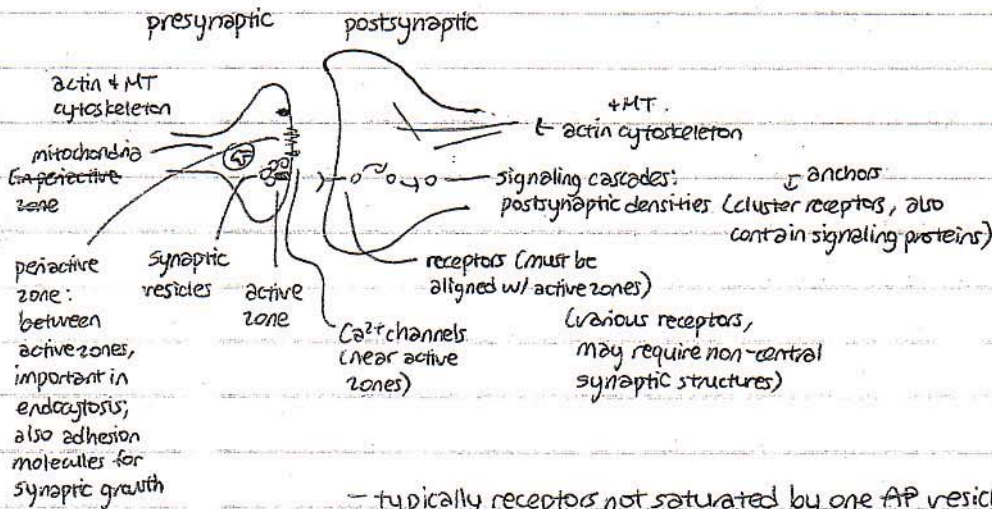 presynaptic
postsynaptic
actin & MT
cytoskeleton
mitochondria
zone
periactive
zone:
between
active zones,
important in
endocytosis;
also adhesion
molecules for
synaptic growth
synaptic
vesicles
active
zone
Ca²⁺ channels
(near active
zones)
& MT.
actin cytoskeleton
signaling cascades:
anchors
postsynaptic densities (cluster receptors, also
contain signaling proteins)
receptors (must be
aligned w/ active zones)
(various receptors,
may require non-central
synaptic structures)
- typically receptors not saturated by one AP vesicl